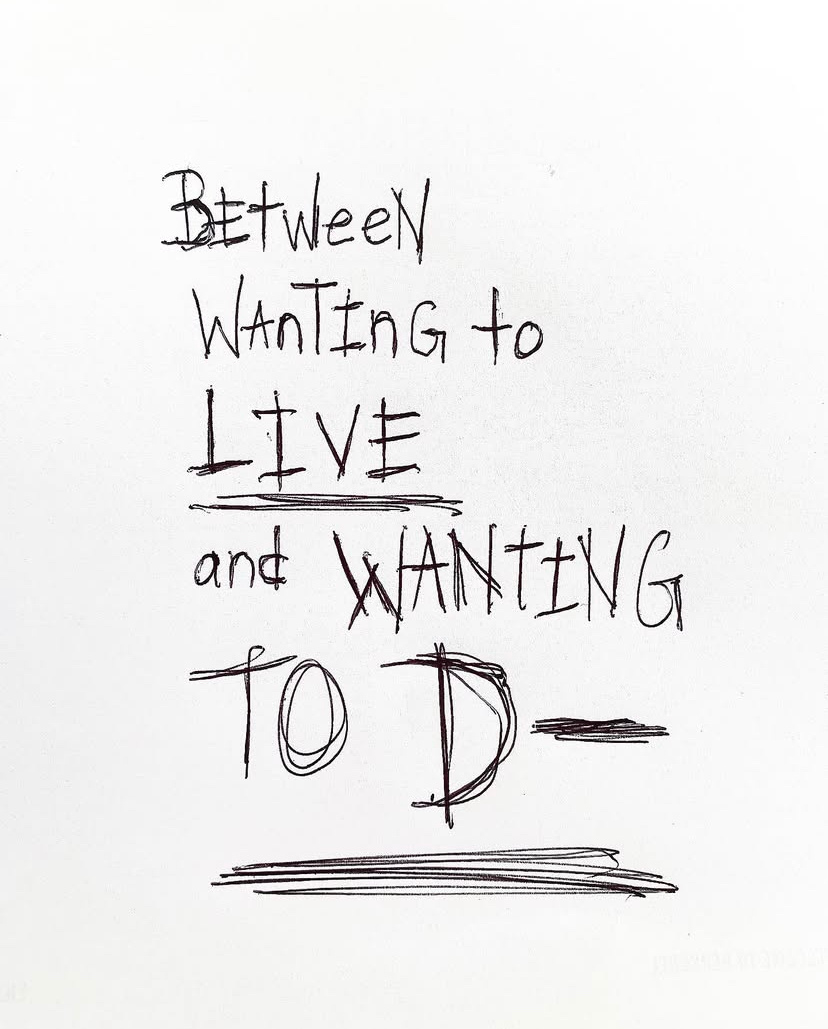 BETWeeN
WAnTInG to
LIVE
and WANTING
TO D—